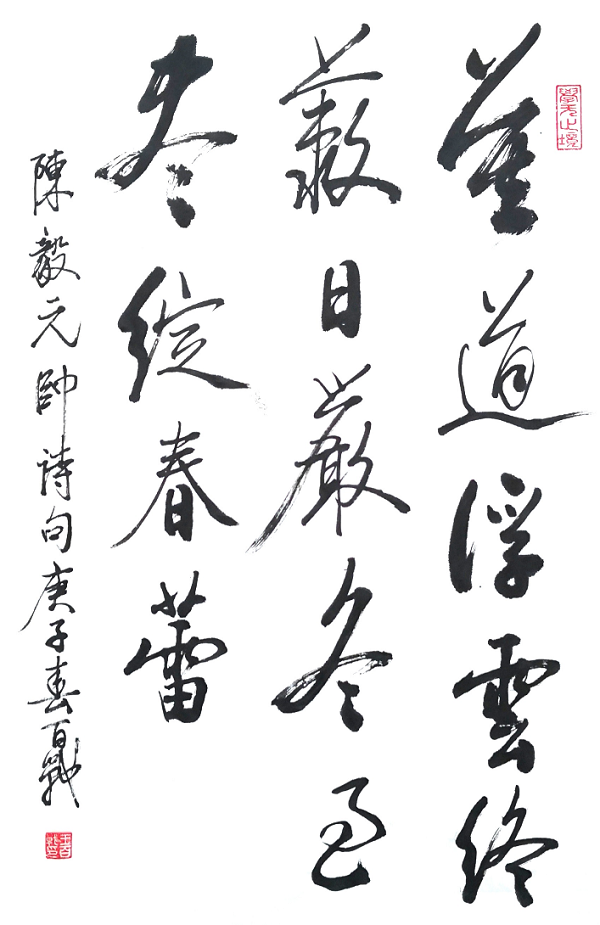 學无止境
莫道浮雲終
蔽日嚴冬過
尽綻春蕾
陳毅元帥詩句庚子春百戰